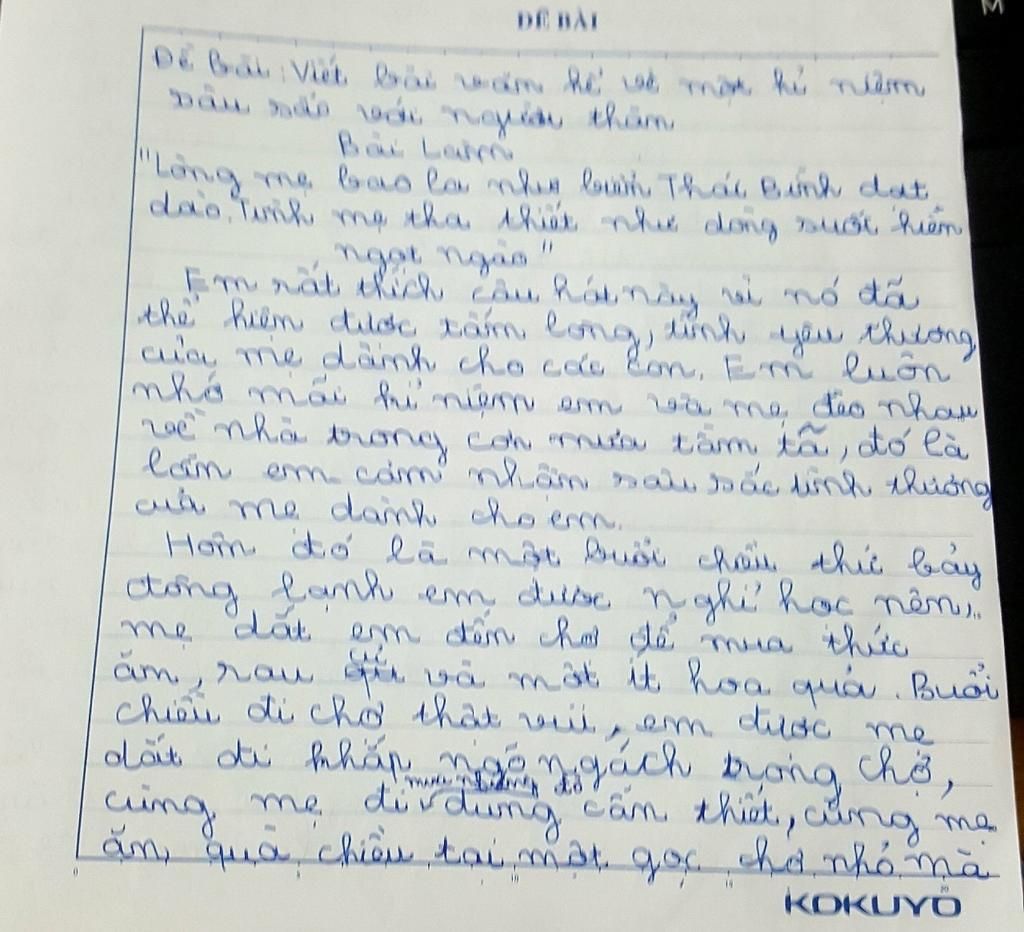 ĐỀ BÀI
Đề bài: Viết bài văm kể về một kỉ niệm
sâu sắc với người thâm
Bài Lam
"Lòng mẹ bao la như biình Thái Bình dạt
dào, Tình mẹ tha thiết như dòng suối hiền
ngọt ngào"
Em rất thích câu hát này vì nó đã
thể hiêm được tấm long, tình yêu thương
của mẹ dành cho các con. Em luôn
nhớ mãi kỉ niệm em và mẹ đèo nhau
về nhà trong cơn mưa tầm tã, đó là
lần em cảm nhận sâu sắc tình thương
của mẹ dành cho em.
Hôm đó là một buổi chiều thứ bảy
đông lạnh em được nghỉ học nêm,..
mẹ dắt em đến chợ để mua thức
ăm, rau củ và một ít hoa quả. Buổi
chiều đi chợ thật vui, em được mẹ
dắt đi khắp ngõ ngách trong chợ,
cùng mẹ đi mua những đồ dùng cần thiết, cùng mẹ
ăm, quà chiều tại một góc chợ nhỏ mà
KOKUYO